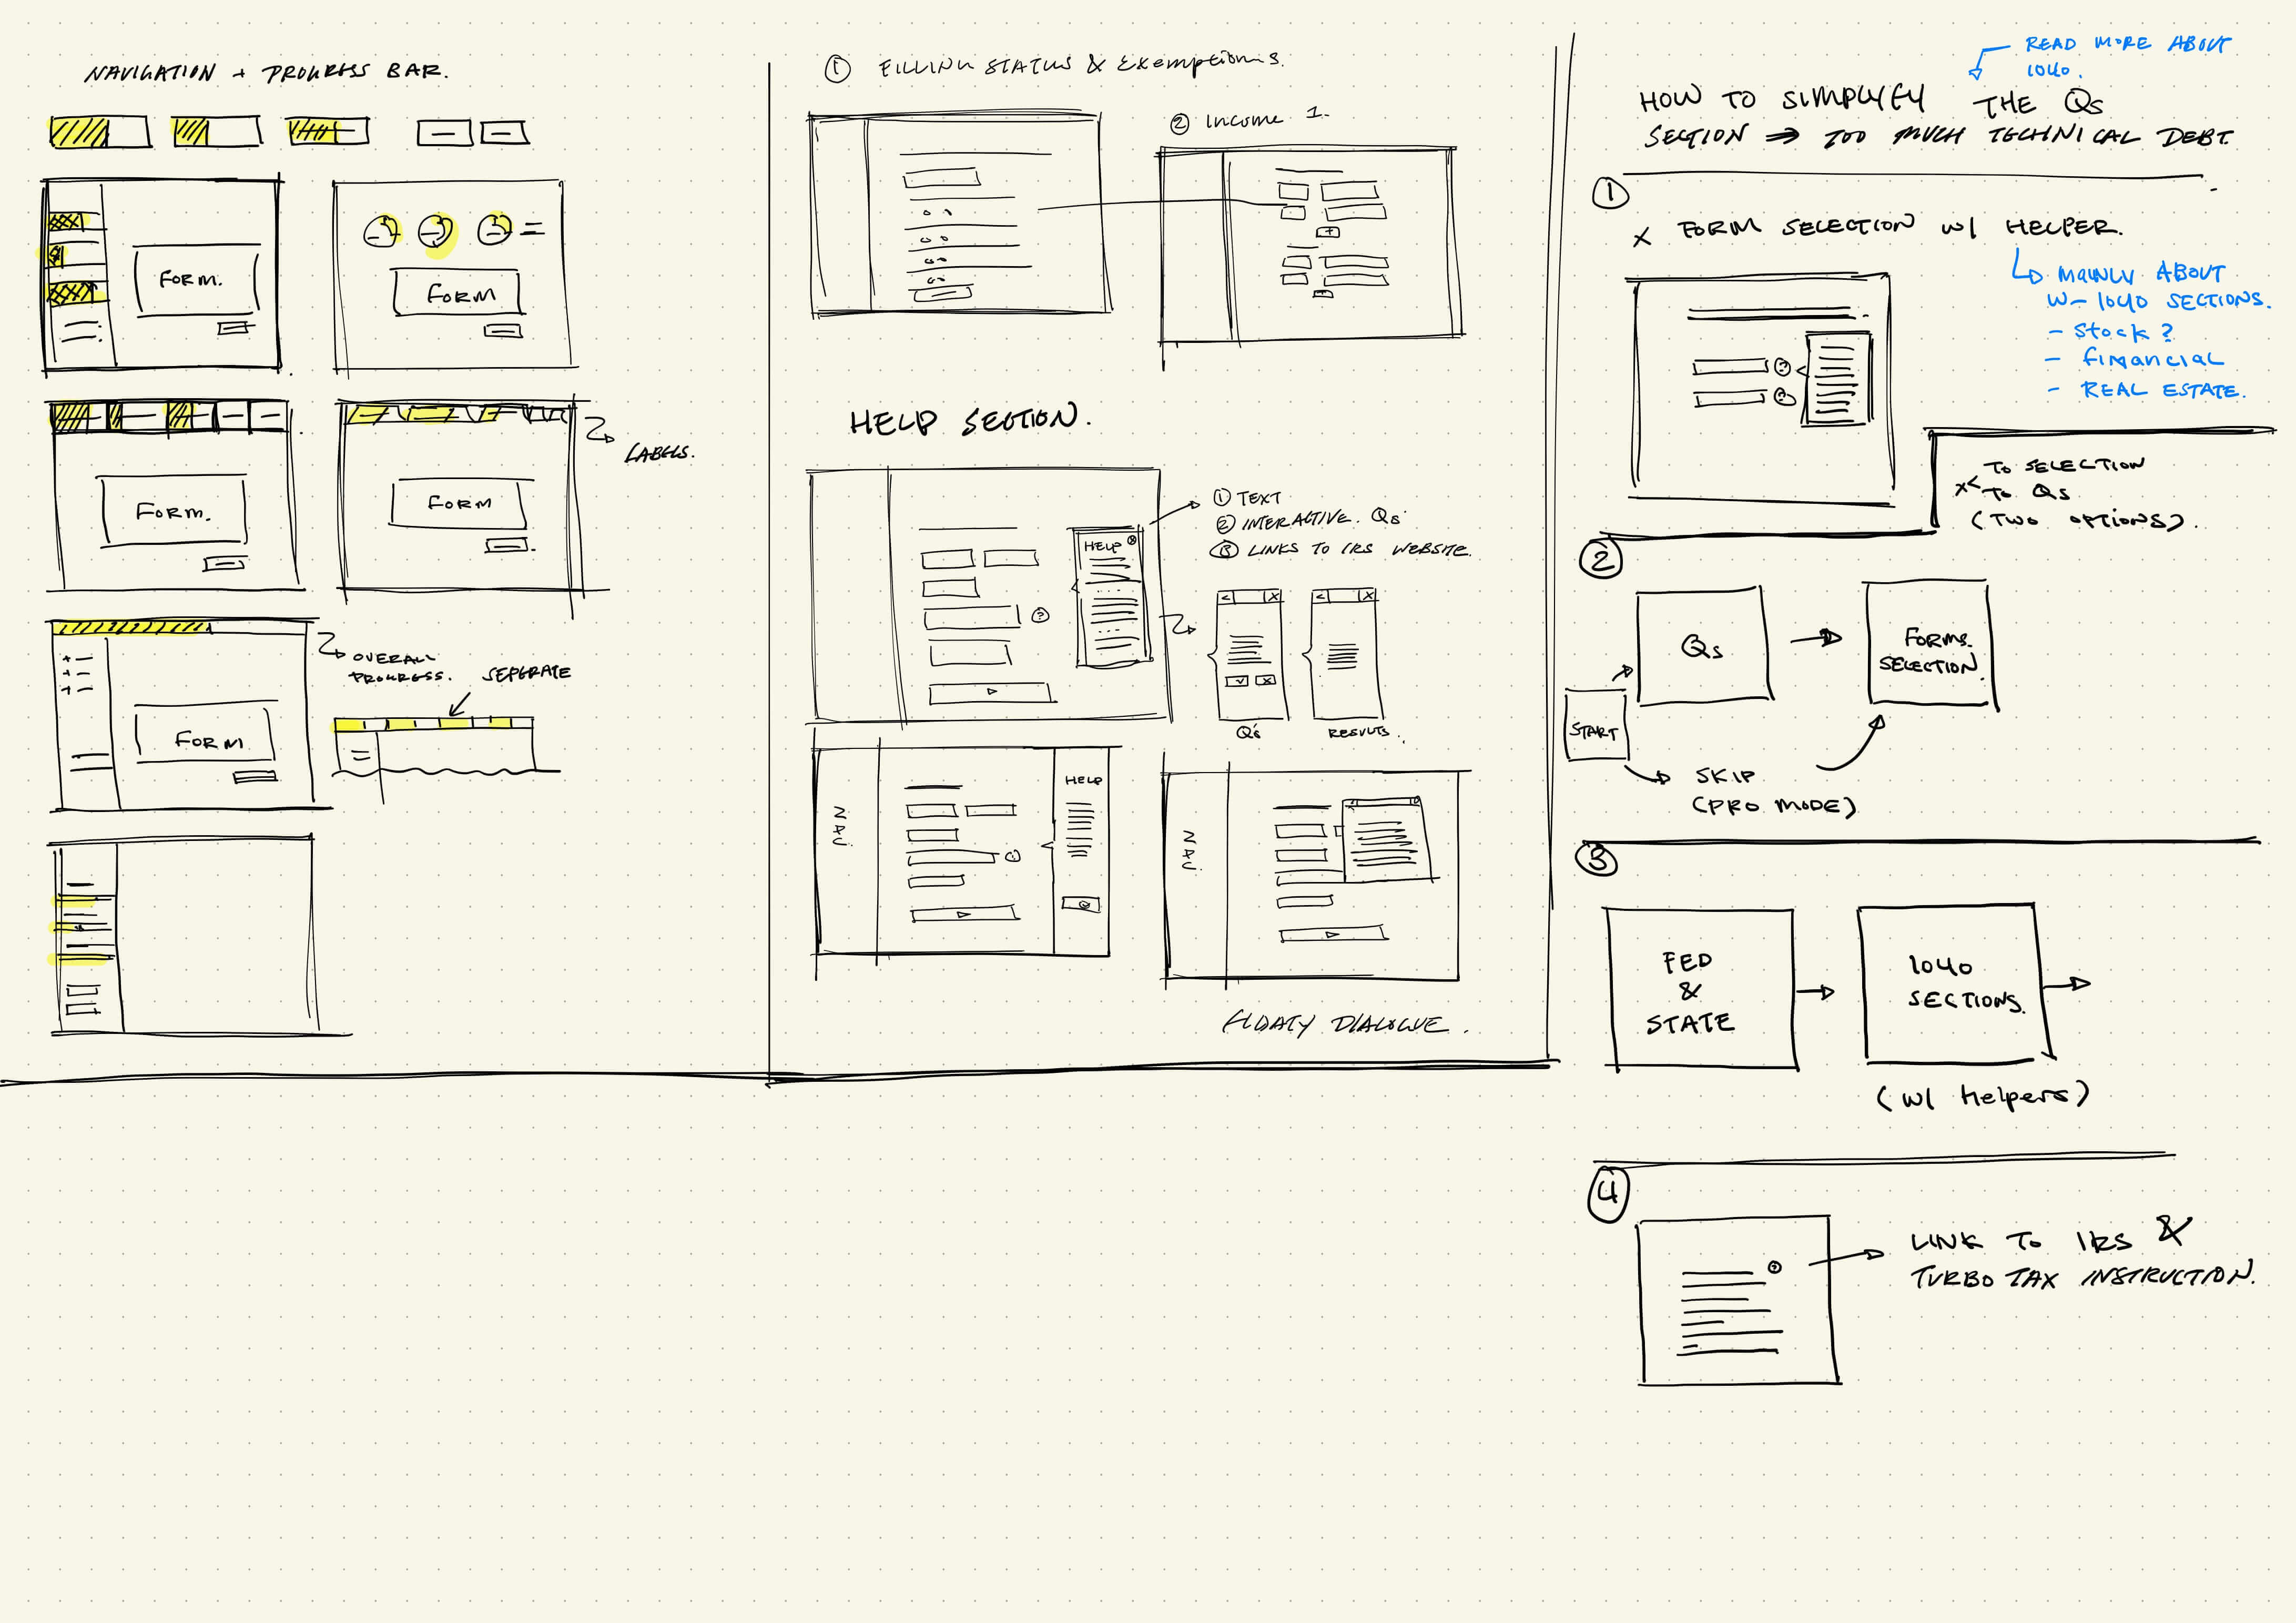 NAVIGATION + PROGRESS BAR.
FORM.
FORM
FORM.
FORM
LABELS.
OVERALL
PROGRESS.
SEPERATE
FORM
① FILLING STATUS & Exemptions.
② Income 1.
HELP SECTION.
HELP
① TEXT
② INTERACTIVE. Qs
③ LINKS TO IRS WEBSITE.
Q's
RESULTS.
NAV.
HELP
NAV.
FLOATY DIALOGUE.
READ MORE ABOUT
1040.
HOW TO SIMPLYFY THE Qs
SECTION ⇒ TOO MUCH TECHNICAL DEBT.
①
x FORM SELECTION w/ HELPER.
MAINLY ABOUT
W- 1040 SECTIONS.
- Stock?
- financial
- REAL ESTATE.
TO SELECTION
x< TO Qs
(TWO OPTIONS).
②
Qs
FORMS.
SELECTION.
START
SKIP
(PRO MODE)
③
FED
&
STATE
1040
SECTIONS.
(w/ Helpers)
④
LINK TO IRS &
TURBO TAX INSTRUCTION.